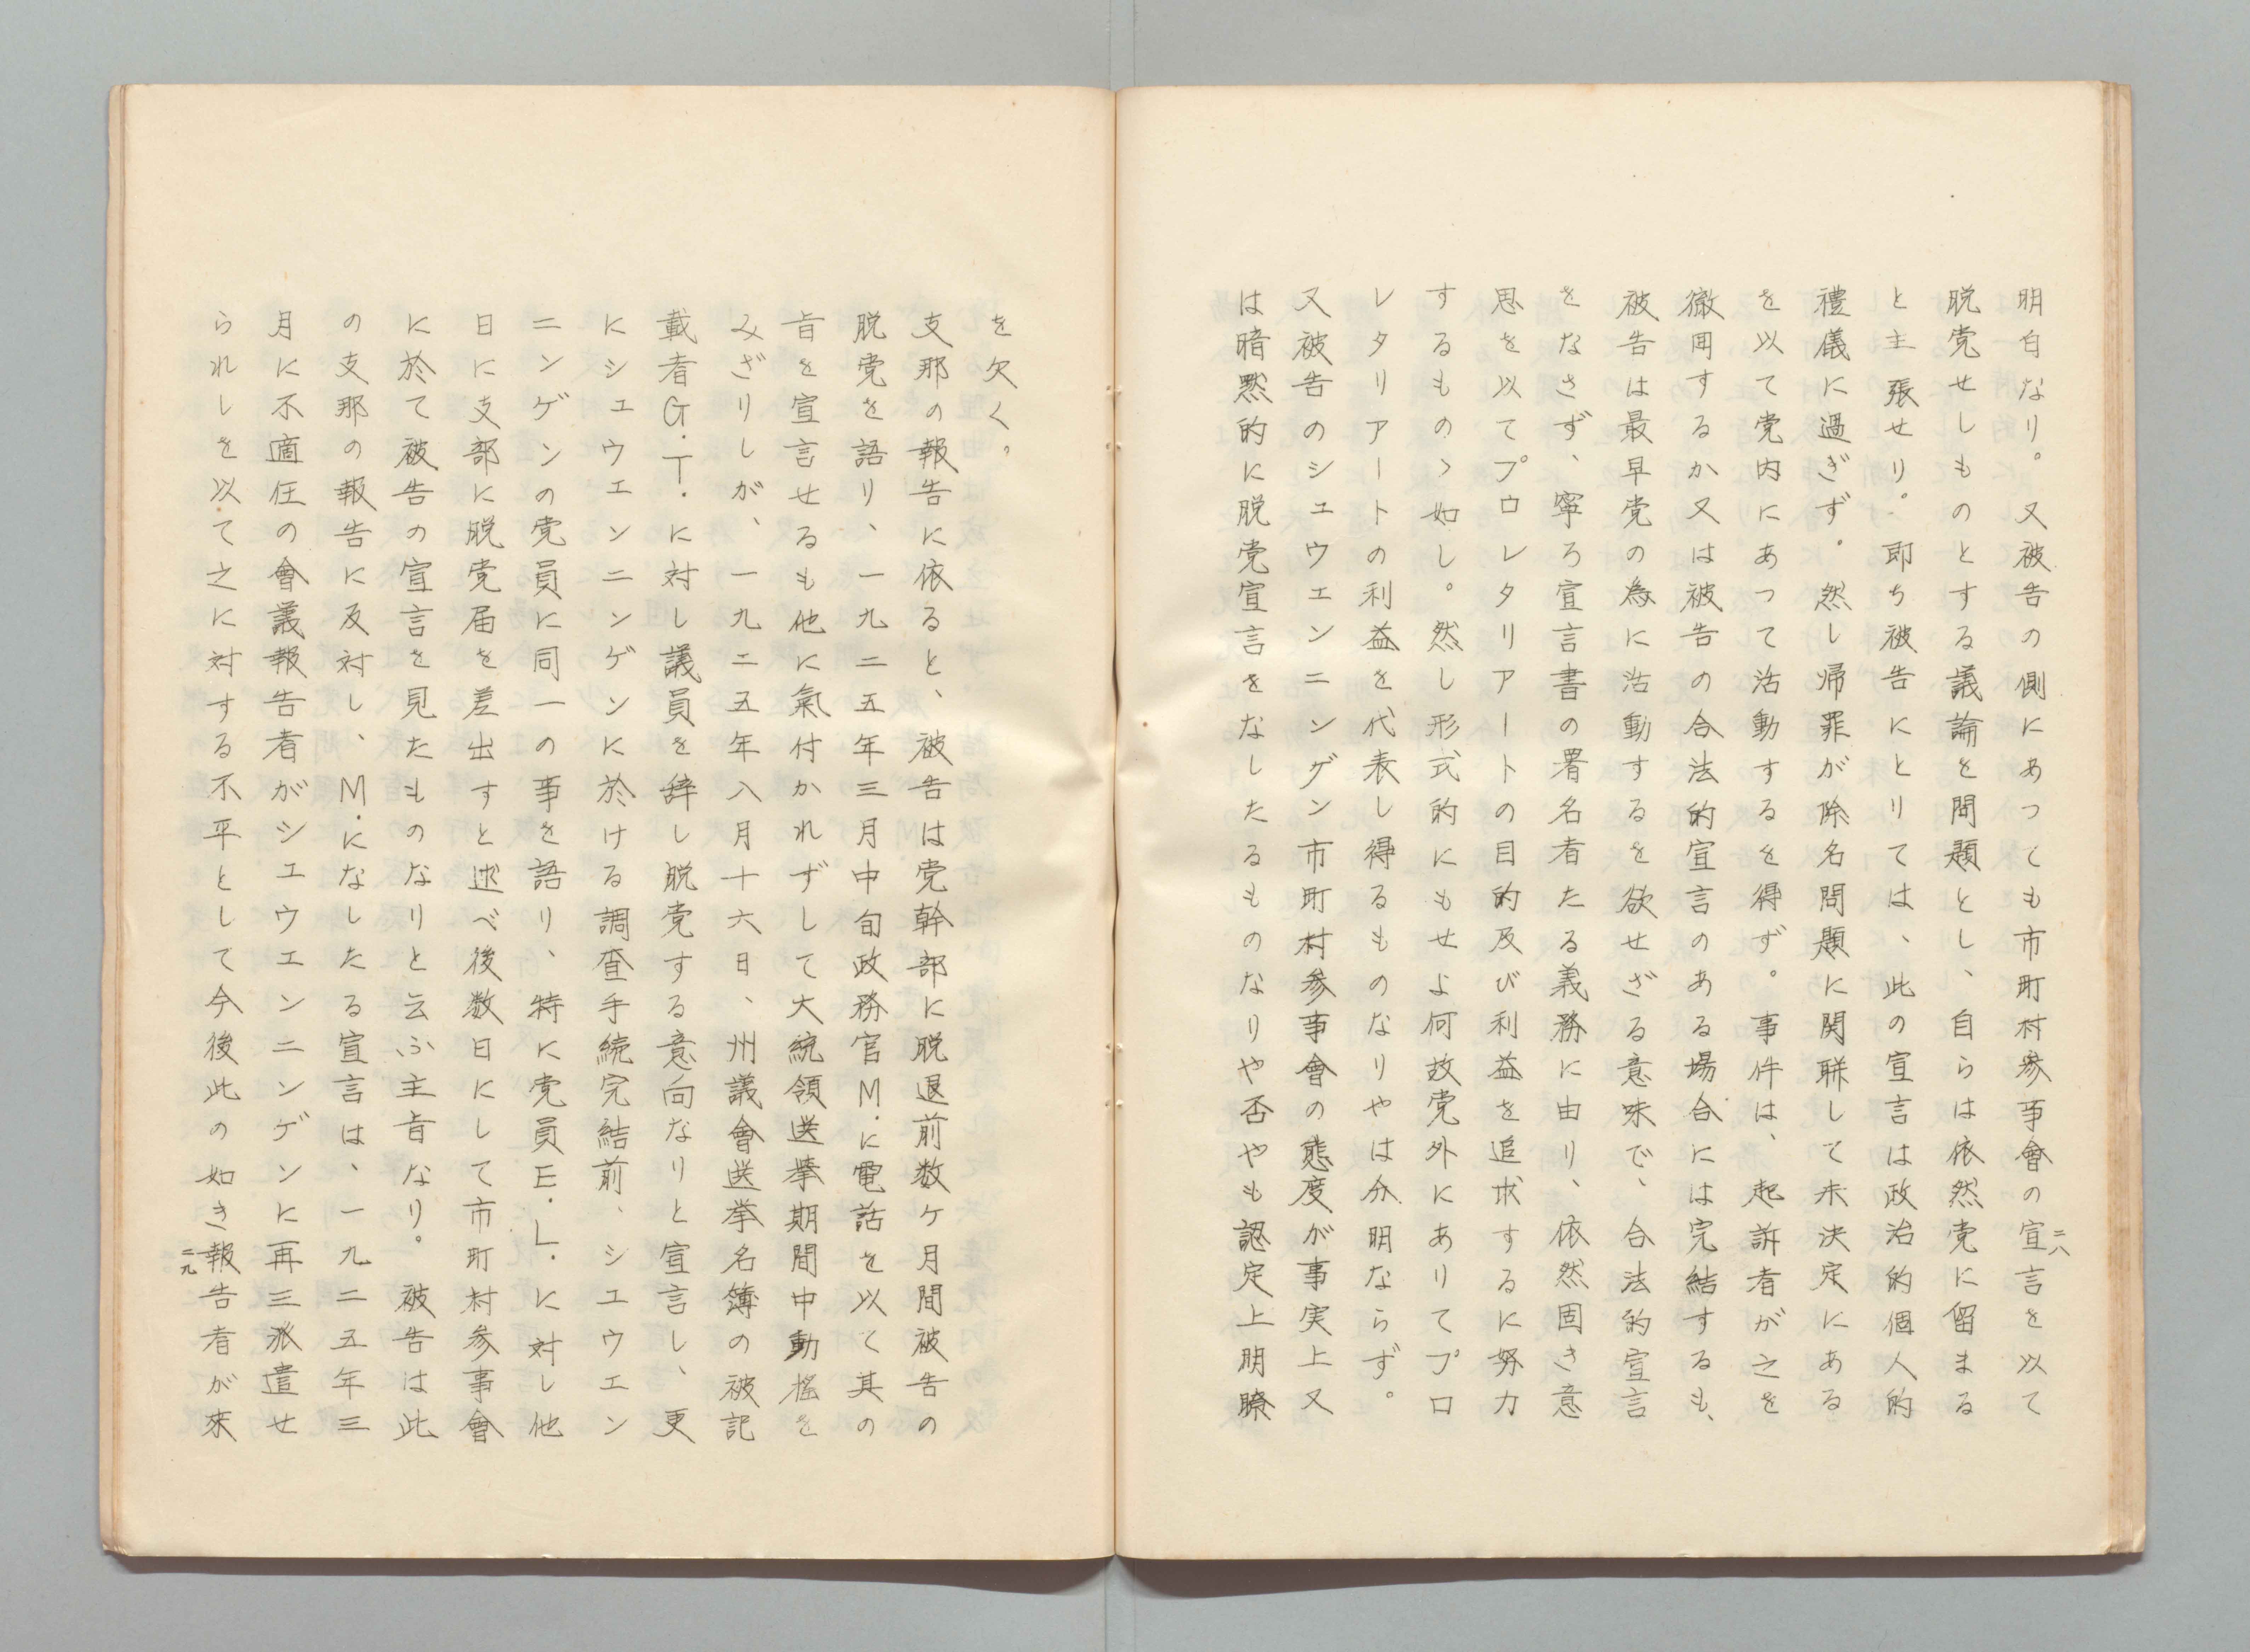 明白なり。又被告の側にあつても市町村参事會の宣言を以て
脱党せしものとする議論を問題とし、自らは依然党に留まる
と主張せり。即ち被告にとりては、此の宣言は政治的個人的
禮儀に過ぎず。然し帰罪が除名問題に関聯して未決定にある
を以て党内にあつて活動するを得ず。事件は、起訴者が之を
撤回するか又は被告の合法的宣言のある場合には完結するも、
被告は最早党の為に活動するを欲せざる意味で、合法的宣言
をなさず、寧ろ宣言書の署名者たる義務に由り、依然固き意
思を以てプロレタリアートの目的及び利益を追求するに努力
するものゝ如し。然し形式的にもせよ何故党外にありてプロ
レタリアートの利益を代表し得るものなりやは分明ならず。
又被告のシェウェンニンゲン市町村参事會の態度が事実上又
は暗黙的に脱党宣言をなしたるものなりや否やも認定上明瞭
二八
を欠く。
支那の報告に依ると、被告は党幹部に脱退前数ケ月間被告の
脱党を語り、一九二五年三月中旬政務官M.に電話を以て其の
旨を宣言せるも他に氣付かれずして大統領選挙期間中動搖を
みざりしが、一九二五年八月十六日、州議會選挙名簿の被記
載者G.T.に対し議員を辞し脱党する意向なりと宣言し、更
にシェウェンニンゲンに於ける調査手続完結前、シエウエン
ニンゲンの党員に同一の事を語り、特に党員E.L.に対し他
日に支部に脱党届を差出すと述べ後数日にして市町村参事會
に於て被告の宣言を見たものなりと云ふ主旨なり。被告は此
の支那の報告に反対し、M.になしたる宣言は、一九二五年三
月に不適任の會議報告者がシエウエンニンゲンに再三派遣せ
られしを以て之に対する不平として今後此の如き報告者が來
二九